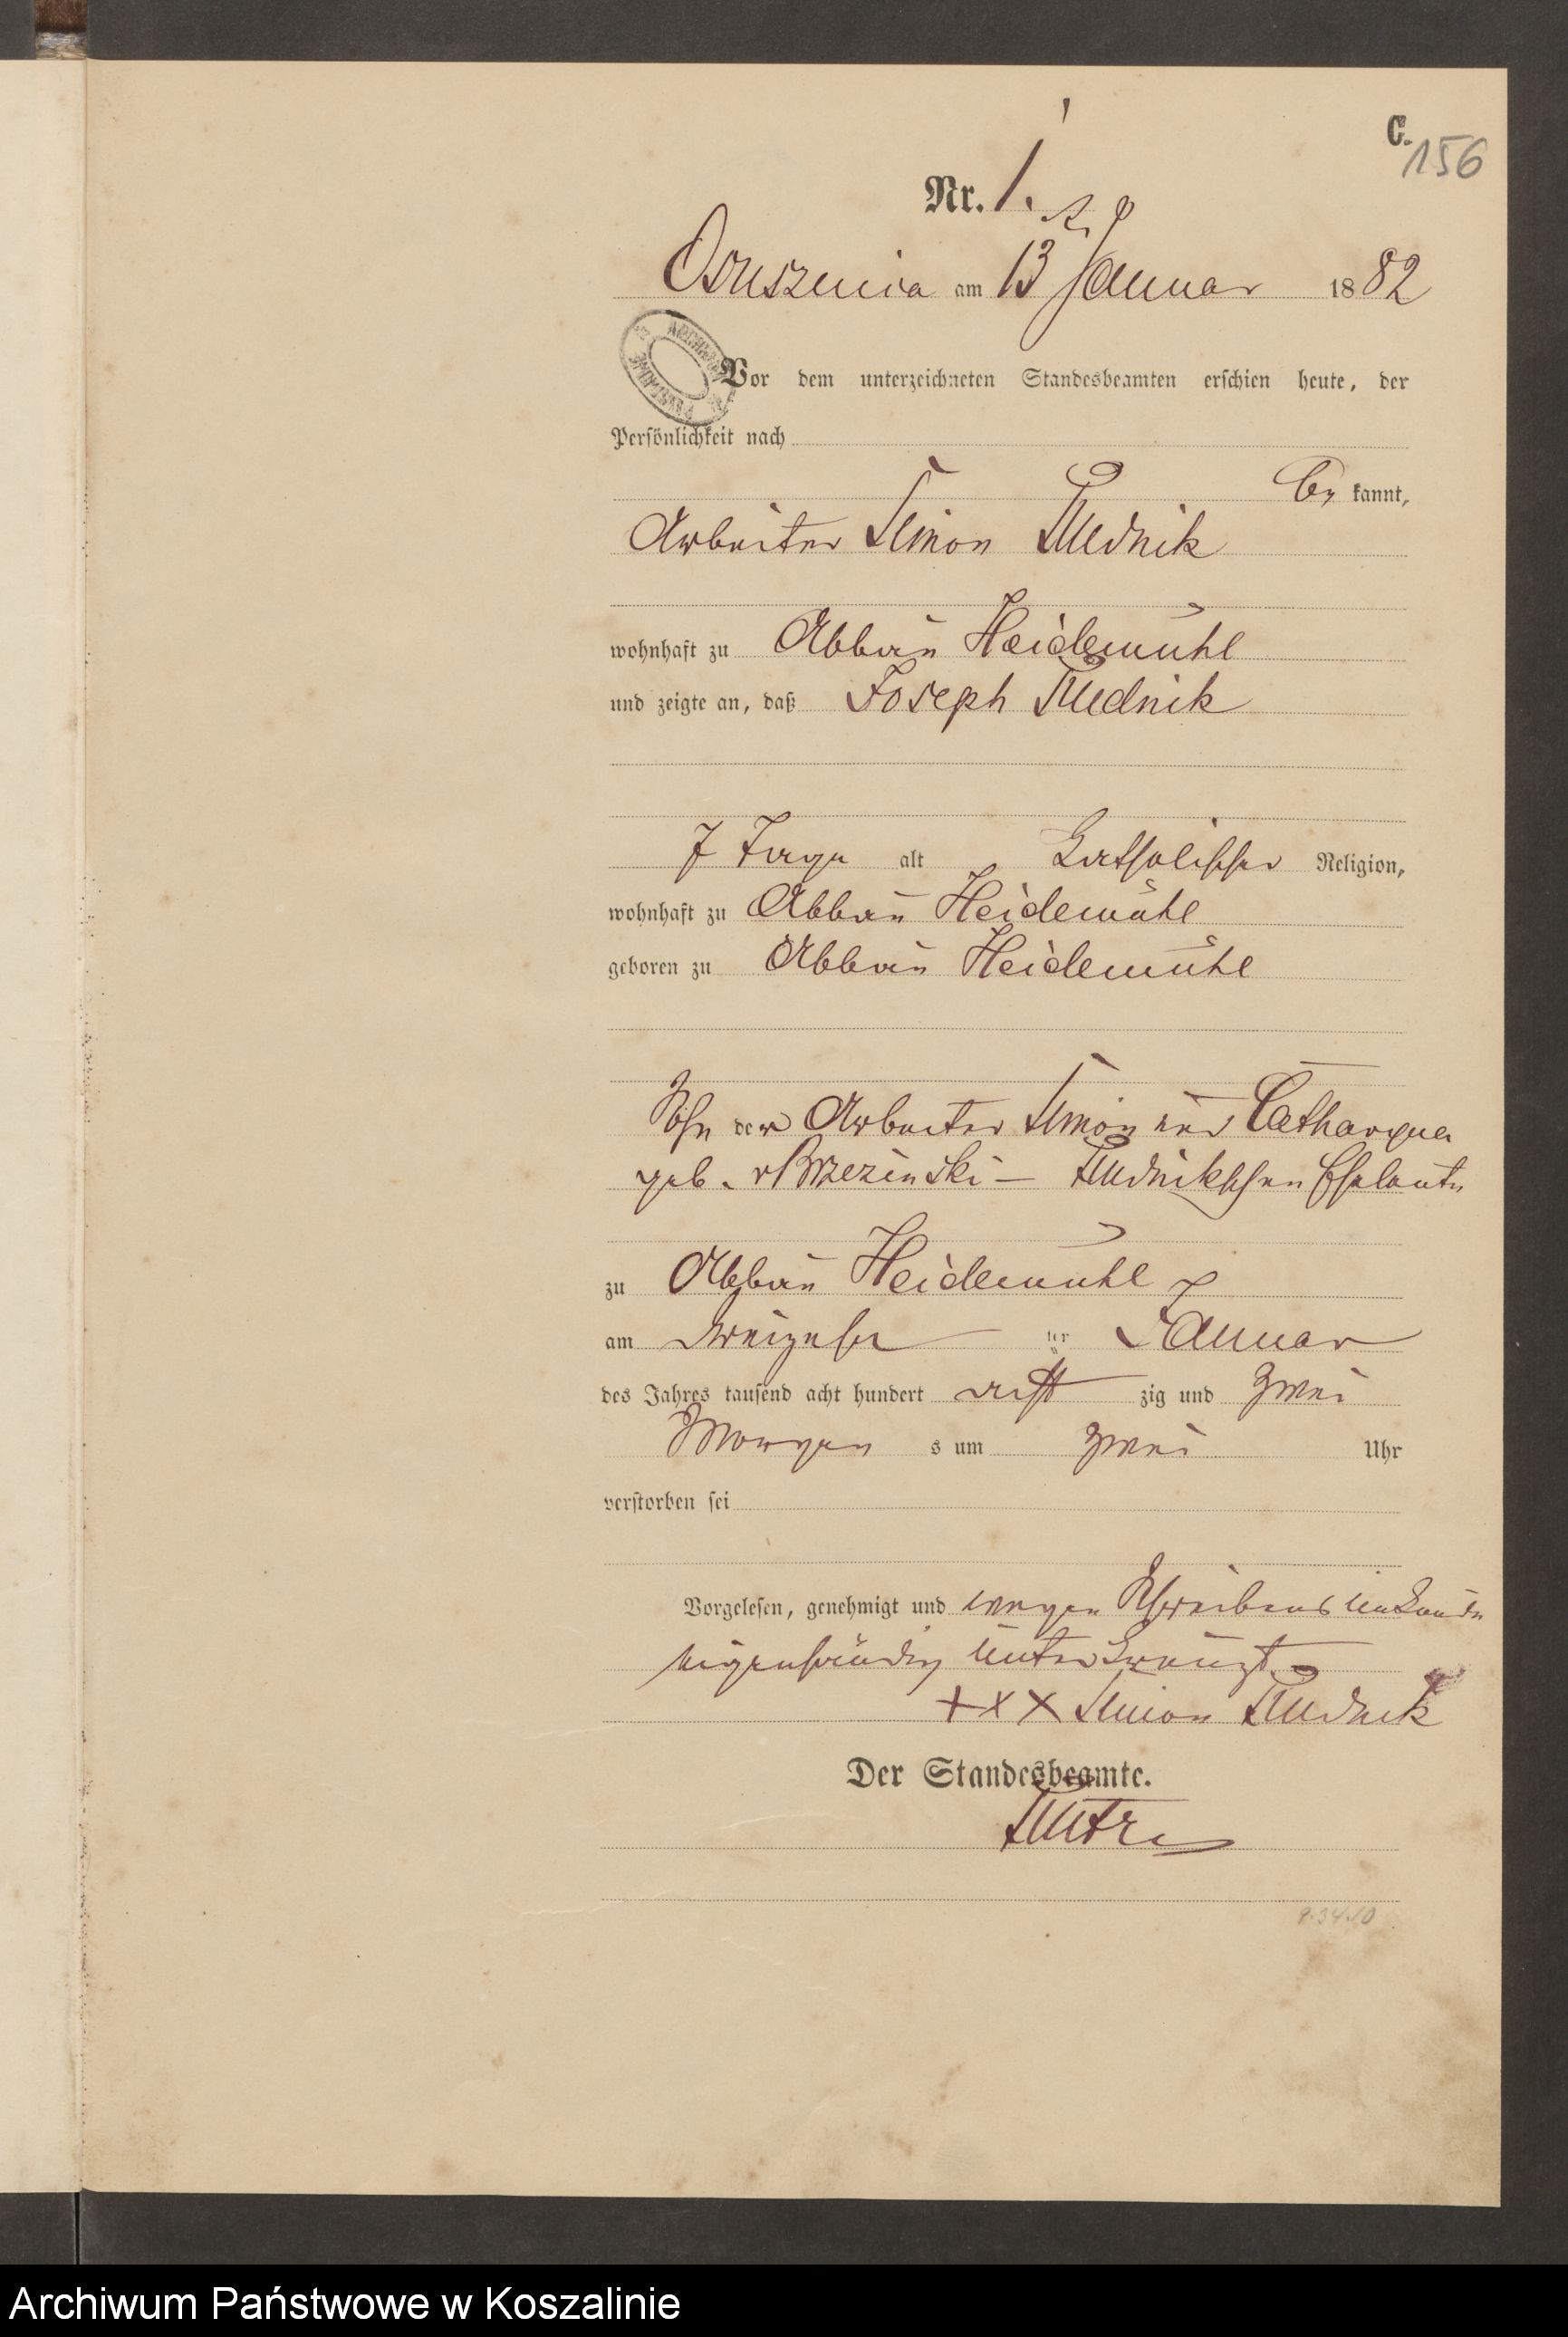 C.
156
Nr. 1.
Osuszenica am 13 Januar 1882
Vor dem unterzeichneten Standesbeamten erschien heute, der
Persönlichkeit nach
be kannt,
Arbeiter Simon Rudnik
wohnhaft zu Abbau Heidemühl
und zeigte an, daß Joseph Rudnik
7 Tage alt Katholischer Religion,
wohnhaft zu Abbau Heidemühl
geboren zu Abbau Heidemühl
Sohn der Arbeiter Simon und Catharina
geb. v Brzezinski – Rudnikschen Eheleute
zu Abbau Heidemühl
am Dreizehn ter Januar
des Jahres tausend acht hundert acht zig und zwei
Morgen s um zwei Uhr
verstorben sei
Vorgelesen, genehmigt und wegen Schreibens unkunde
eigenhändig unterkreuzt
+ x x Simon Rudnik
Der Standesbeamte.
9.34.10
Archiwum Państwowe w Koszalinie